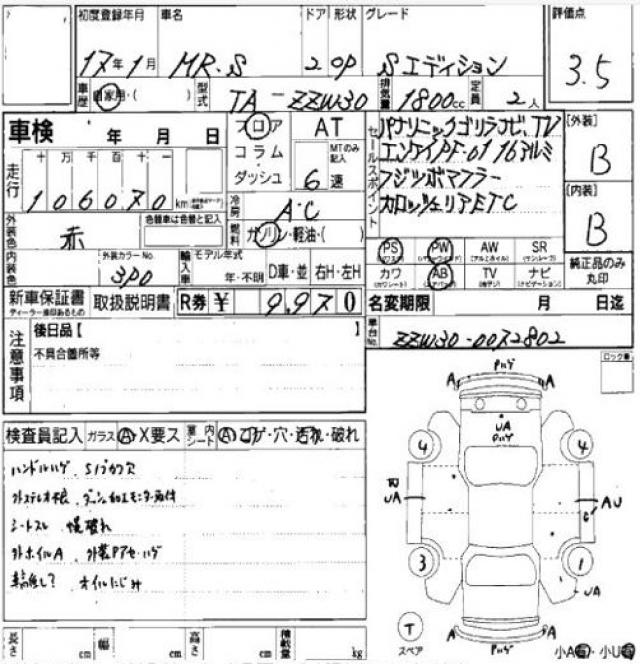 初度登録年月 車名 ドア 形状 グレード 評価点
17年1月 MR.S 2 OP Sエディション 3.5
車歴 自家用・( ) 型式 TA-ZZW30 排気量 1800cc 定員 2人
車検 年 月 日 フロア AT
コラム MTのみ記入
ダッシュ 6速
走行 十 万 千 百 十 一
106070 km
冷房 A・C
外装色 赤 色替車は色替と記入 燃料 ガソリン・軽油・( )
内装色 外装カラーNo. 3P0 輸入車 モデル年式 年・不明 D車・並 右H・左H
セールスポイント
パナソニックゴリラナビ、TV
エンケイPF-01 16アルミ
フジツボマフラー
カロッツェリアETC
[外装] B
[内装] B
PS PW AW SR
(パワステ) (パワーウィンドウ) (アルミホイル) (サンルーフ)
カワ AB TV ナビ
(カワシート) (エアバッグ) (ナビゲーション)
純正品のみ丸印
新車保証書 取扱説明書 R券 ¥ 9,970 名変期限 月 日迄
ディーラー捺印あるもの
注意事項 後日品【
不具合箇所等
車台No. ZZW30-0072802
ロック車
検査員記入 ガラス A・X要ス 室内シート A コゲ・穴・汚れ・破れ
ハンドルハゲ
シートスレ 幌破れ
外ホイルA
オイルにじみ
A A
UA
4 4
UA
3 1
UA
T
スペア
A A
長さ cm 幅 cm 高さ cm 積載量 kg
小A 小U